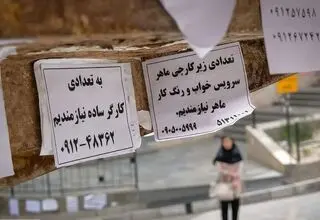 به تعدادی
کارگر ساده نیازمندیم
۰۹۱۲-۴۸۳۶۲
تعدادی زیرکارچی ماهر
سرویس خواب و رنگ کار
ماهر نیازمندیم.
۰۹۰۵۰۰۵۹۹۹